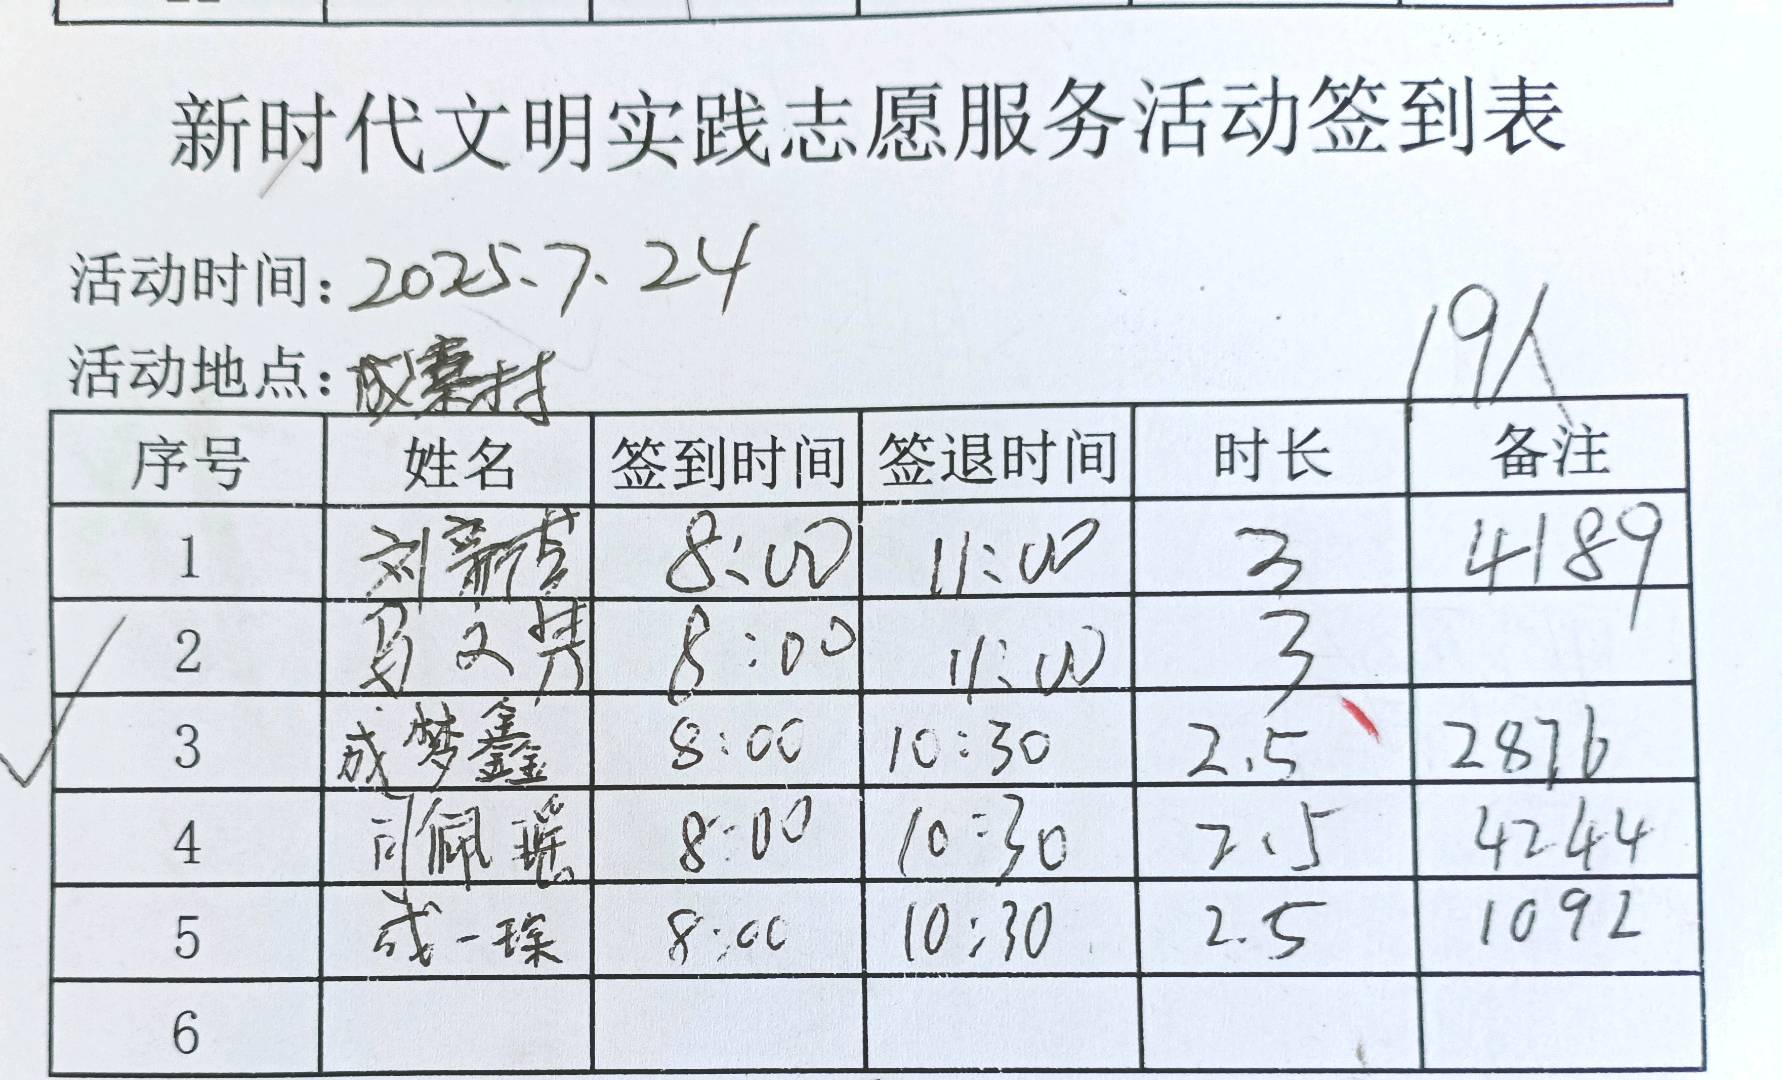 新时代文明实践志愿服务活动签到表
活动时间：2025.7.24
19人
活动地点：成寨村
序号 姓名 签到时间 签退时间 时长 备注
1 刘 8:00 11:00 3 4189
2 马文 8:00 11:00 3
3 成梦鑫 8:00 10:30 2.5 2876
4 司佩瑶 8:00 10:30 2.5 4244
5 成一琛 8:00 10:30 2.5 1092
6